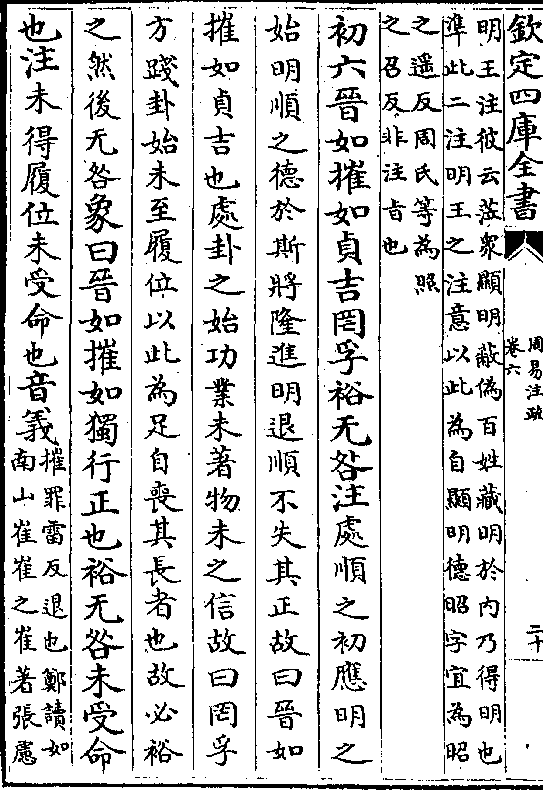 欽定四庫全書
周易注疏
卷六
二十
明王注彼云蒞衆顯明蔽偽百姓藏明於内乃得明也
準此二注明王之注意以此為自顯明德昭字宜為昭
之遥反周氏等為照
之召反非注㫖也
初六晉如摧如貞吉罔孚裕无咎注處順之初應明之
始明順之德於斯將隆進明退順不失其正故曰晉如
摧如貞吉也處卦之始功業未著物未之信故曰罔孚
方踐卦始未至履位以此為足自喪其長者也故必裕
之然後无咎象曰晉如摧如獨行正也裕无咎未受命
也注未得履位未受命也音義摧罪雷反退也鄭讀如
南山崔崔之崔著張慮